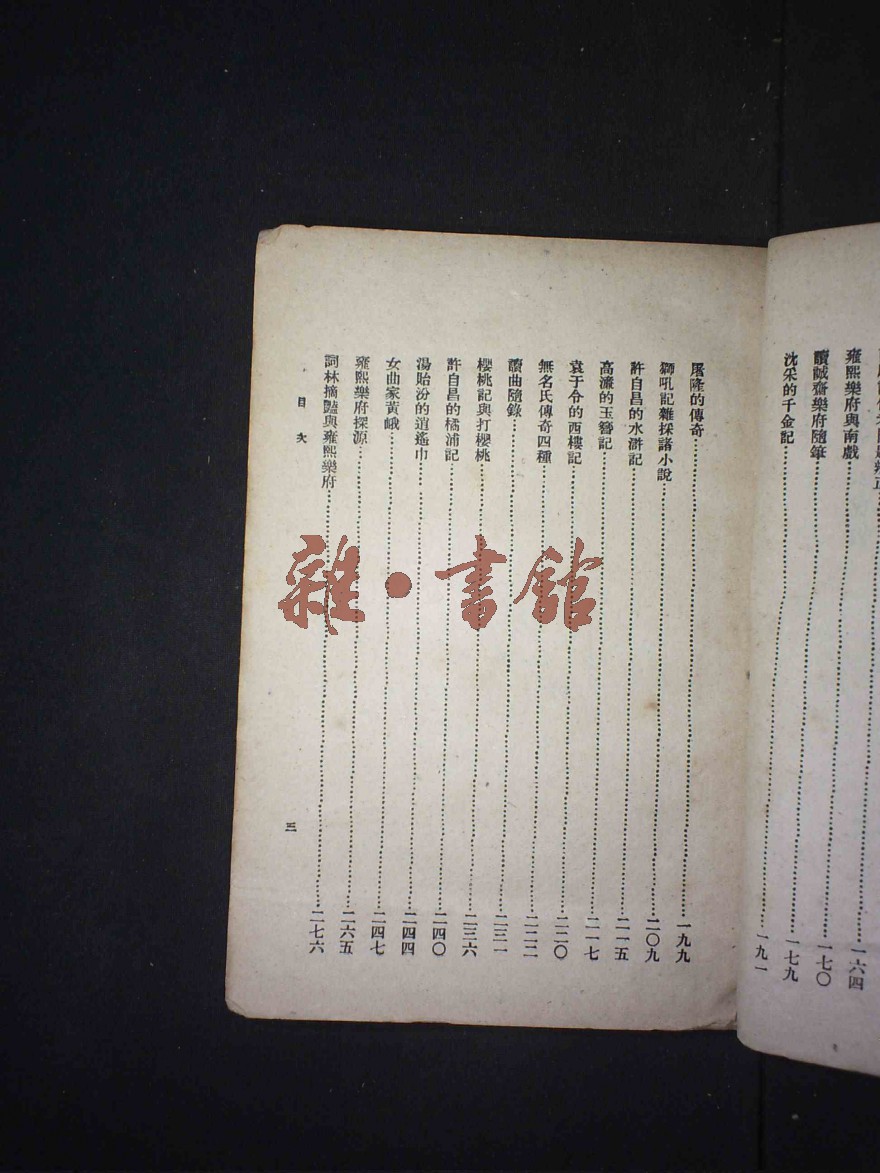 雍熙樂府與南戲……一六四
讀誠齋樂府隨筆……一七〇
沈采的千金記……一七九
一九一
屠隆的傳奇……一九九
獅吼記雜採諸小說……二〇九
許自昌的水滸記……二一五
高濂的玉簪記……二一七
袁于令的西樓記……二二〇
無名氏傳奇四種……二二二
讀曲隨錄……二三一
櫻桃記與打櫻桃……二三六
許自昌的橘浦記……二四〇
湯貽汾的逍遙巾……二四四
女曲家黃峨……二四七
雍熙樂府探源……二六五
詞林摘豔與雍熙樂府……二七六
目次
三
雜·書館